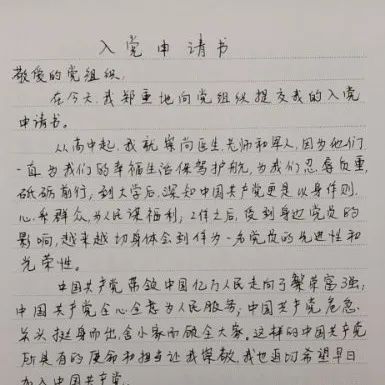 入党申请书
敬爱的党组织：
在今天，我郑重地向党组织提交我的入党
申请书。
从高中起，我就崇尚医生老师和军人，因为他们
一直为我们的幸福生活保驾护航，为我们忍辱负重，
砥砺前行，到大学后，深知中国共产党更是以身作则，
心系群众，为人民谋福利；工作之后，受到身边党员的
影响，越来越切身体会到作为一名党员的先进性和
光荣性。
中国共产党带领中国亿万人民走向了繁荣富强，
中国共产党全心全意为人民服务；中国共产党危急
关头挺身而出，舍小家而顾全大家。这样的中国共产党
所具有的使命和担当让我深敬，我也迫切希望早日
加入中国共产党。